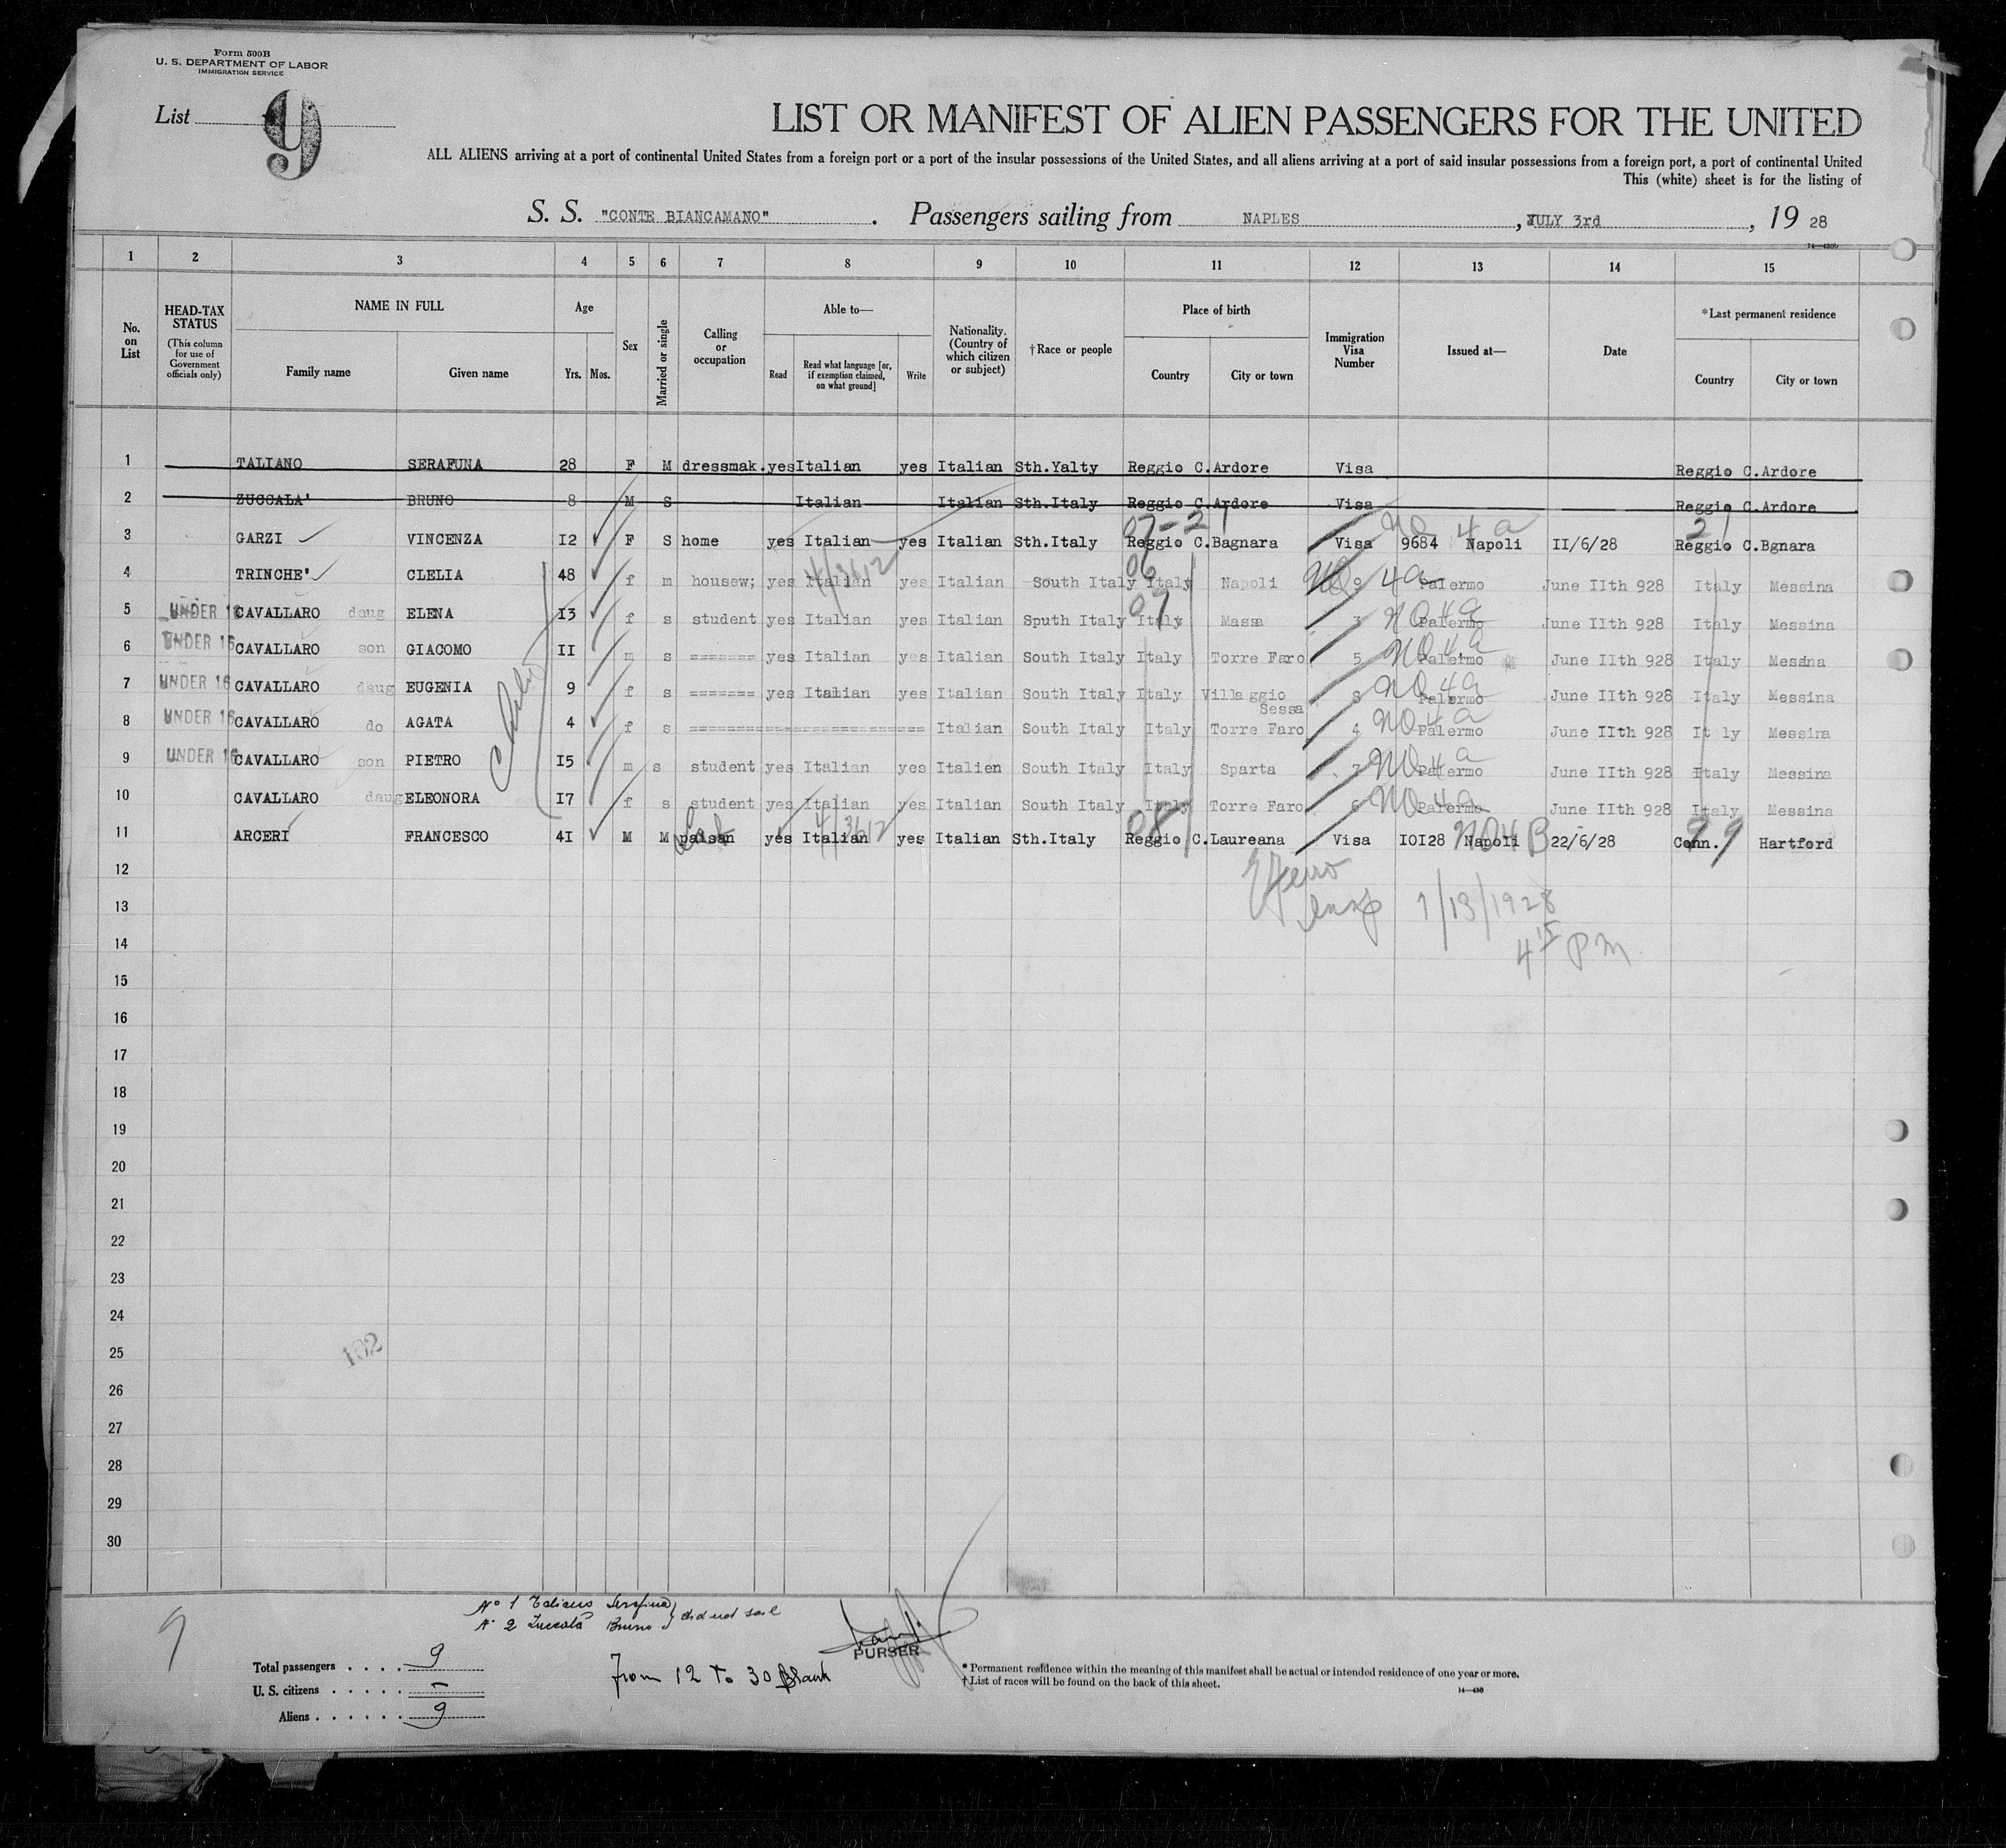 Form 500B
U. S. DEPARTMENT OF LABOR
IMMIGRATION SERVICE
List 9
LIST OR MANIFEST OF ALIEN PASSENGERS FOR THE UNITED
ALL ALIENS arriving at a port of continental United States from a foreign port or a port of the insular possessions of the United States, and all aliens arriving at a port of said insular possessions from a foreign port, a port of continental United
This (white) sheet is for the listing of
S. S. "CONTE BIANCAMANO" . Passengers sailing from NAPLES , JULY 3rd , 19 28
14—430b
1 2 3 4 5 6 7 8 9 10 11 12 13 14 15
No. on List
HEAD-TAX STATUS (This column for use of Government officials only)
NAME IN FULL
Family name Given name
Age
Yrs. Mos.
Sex
Married or single
Calling or occupation
Able to—
Read Read what language [or, if exemption claimed, on what ground] Write
Nationality. (Country of which citizen or subject)
†Race or people
Place of birth
Country City or town
Immigration Visa Number
Issued at—
Date
*Last permanent residence
Country City or town
1 TALIANO SERAFUNA 28 F M dressmak. yes Italian yes Italian Sth.Yalty Reggio C.Ardore Visa Reggio C.Ardore
2 ZUCCALA' BRUNO 8 M S Italian Italian Sth.Italy Reggio C.Ardore Visa Reggio C.Ardore
07-21 NO 4a 21
3 GARZI VINCENZA I2 F S home yes Italian yes Italian Sth.Italy Reggio C.Bagnara Visa 9684 Napoli II/6/28 Reggio C.Bgnara
06 4/3612
4 TRINCHE' CLELIA 48 f m housew; yes Italian yes Italian South Italy Italy Napoli NO 9 4a Palermo June IIth 928 Italy Messina
5 UNDER 16 CAVALLARO daug ELENA I3 f s student yes Italian yes Italian Sputh Italy Italy 07 Massa 3 NO 4a Palermo June IIth 928 Italy Messina
6 UNDER 16 CAVALLARO son GIACOMO II m s ======= yes Italian yes Italian South Italy Italy Torre Faro 5 NO 4a Palermo June IIth 928 Italy Messina
7 UNDER 16 CAVALLARO daug EUGENIA 9 f s ======= yes Italian yes Italian South Italy Italy Villaggio Sessa 8 NO 4a Palermo June IIth 928 Italy Messina
8 UNDER 16 CAVALLARO do AGATA 4 f s ======================== Italian South Italy Italy Torre Faro 4 NO 4a Palermo June IIth 928 It ly Messina
9 UNDER 16 CAVALLARO son PIETRO I5 m s student yes Italian yes Italien South Italy Italy Sparta 7 NO 4a Palermo June IIth 928 Italy Messina
10 CAVALLARO daug ELEONORA I7 f s student yes Italian yes Italian South Italy Italy Torre Faro 6 NO 4a Palermo June IIth 928 Italy Messina
08 4/3612 99
11 ARCERI FRANCESCO 4I M M paisan yes Italian yes Italian Sth.Italy Reggio C.Laureana Visa IOI28 Napoli NO4B 22/6/28 Conn. Hartford
12
13 insp 7/13/1928
14 4 15 PM
15
16
17
18
19
20
21
22
23
24
25 102
26
27
28
29
30
9
No 1 Taliano Serafina
No 2 Zuccalà Bruno } did not sail
PURSER
Total passengers . . . . 9
U. S. citizens . . . . . —
Aliens . . . . . . 9
From 12 To 30 Blank
* Permanent residence within the meaning of this manifest shall be actual or intended residence of one year or more.
† List of races will be found on the back of this sheet.
14—430